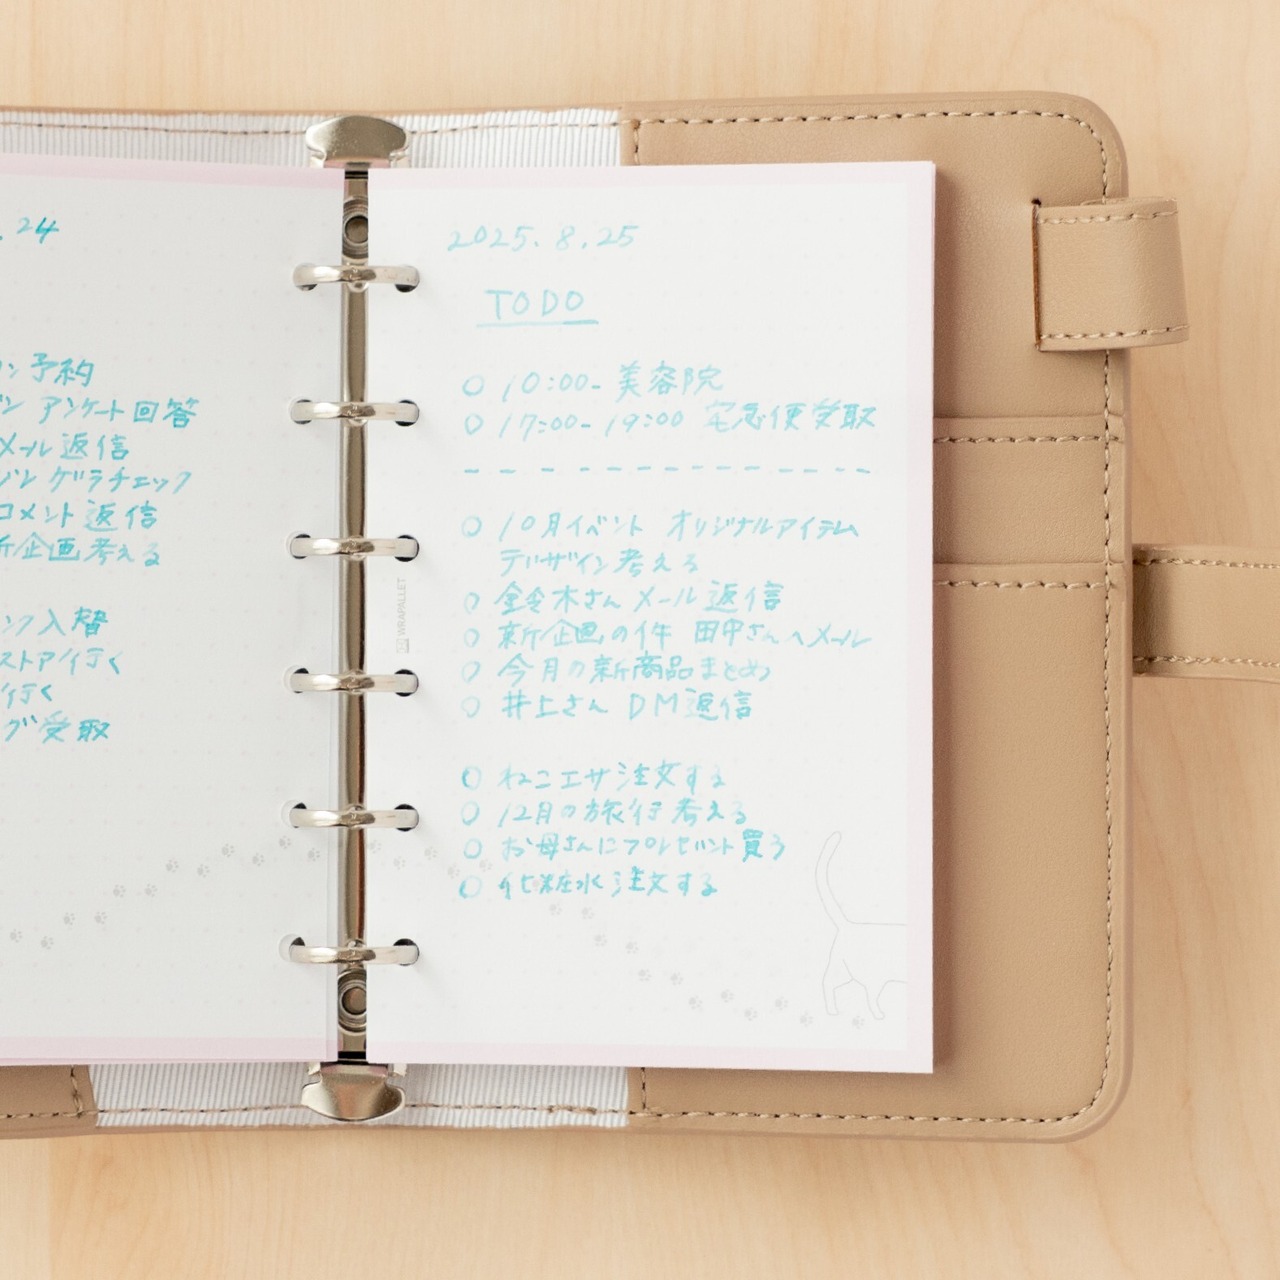 . 24
ン予約
ン アンケート回答
メール返信
ゾン ゲラチェック
コメント返信
新企画考える
ンク入替
ストア行く
行く
グ受取
2025. 8. 25
TODO
○ 10:00- 美容院
○ 17:00- 19:00 宅急便受取
○ 10月イベント オリジナルアイテム
デザイン考える
○ 金鈴木さん メール返信
○ 新企画の件 田中さんへメール
○ 今月の新商品まとめ
○ 井上さん DM返信
○ ねこエサ注文する
○ 12月の旅行考える
○ お母さんにプレゼント買う
○ 化粧水注文する
WRAPALLET